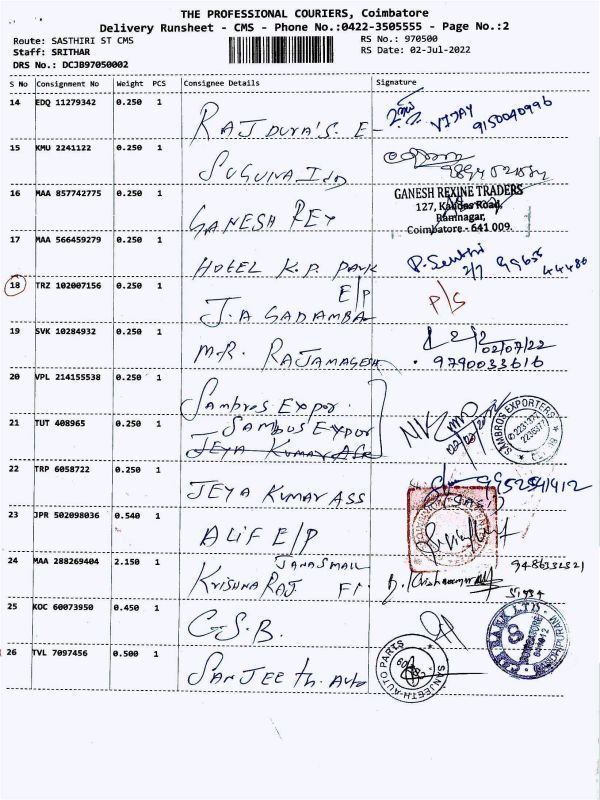 THE PROFESSIONAL COURIERS, Coimbatore
Delivery Runsheet - CMS - Phone No.:0422-3505555 - Page No.:2
Route: SASTHIRI ST CMS RS No.: 970500
Staff: SRITHAR RS Date: 02-Jul-2022
DRS No.: DCJB97050002
S No Consignment No Weight PCS Consignee Details Signature
14 EDQ 11279342 0.250 1
RAJ DURA'S. E- VIJAY 9150040996
15 KMU 2241122 0.250 1
SUGUNA IND
16 MAA 857742775 0.250 1
GANESH REY
GANESH REXINE TRADERS
127, Kalidas Road,
Ramnagar,
Coimbatore - 641 009.
17 MAA 566459279 0.250 1
HOTEL K.P. PARK P. Senthi 2/7 99655 44486
18 TRZ 102007156 0.250 1
E/P
J.A GADAMBA P/S
19 SVK 10284932 0.250 1
M.R. RAJAMAGESH 02/07/22
9790033616
20 VPL 214155538 0.250 1
Sambros Expor.
21 TUT 408965 0.250 1
SAMBUS EXPOR
JEYA KUMAR ASS
SAMBROS EXPORTERS
22 TRP 6058722 0.250 1
JEYA KUMAR ASS 9952541412
23 JPR 502098036 0.540 1
ALIF E/P
24 MAA 288269404 2.150 1
JANASMALL
KRISHNA RAJ. FI 9486332321
25 KOC 60073950 0.450 1
C.S.B.
26 TVL 7097456 0.500 1
SANJEETH. AUTO
SANJEETH-AUTO PARTS
BANK LTD